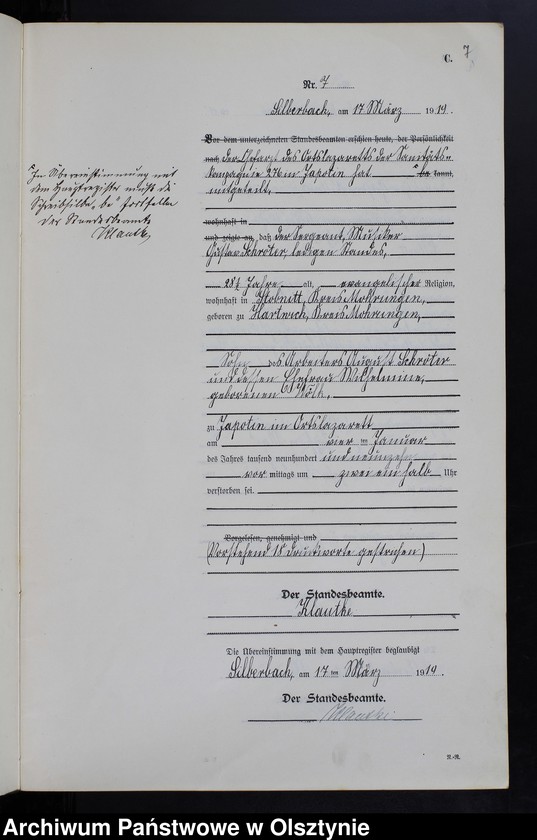 C. 7
Nr. 7
Silberbach, am 17 März 1919.
Vor dem unterzeichneten Standesbeamten erschien heute, der Persönlichkeit
nach, der Chefarzt des Ortslazaretts der Sanitäts-
kompagnie 276 in hat be kannt,
mitgeteilt,
wohnhaft in
und zeigte an, daß der Sergeant, Musiker
Gustav Schröter, ledigen Standes,
28 ½ Jahre alt, evangelischer Religion,
wohnhaft in Kreis Mohrungen,
geboren zu Hartwich, Kreis Mohrungen,
Sohn des Arbeiters August Schröter
und dessen Ehefrau Wilhelmine,
geborenen
zu im Ortslazarett
am vier ten Januar
des Jahres tausend neunhundert und neunzehn
vor mittags um zwei ein halb Uhr
verstorben sei.
Vorgelesen, genehmigt und
(Vorstehend 18 Druckworte gestrichen)
Der Standesbeamte.
Klautke
Die Übereinstimmung mit dem Hauptregister beglaubigt
Silberbach, am 17 ten März 1919.
Der Standesbeamte.
Klautke
R.-R.
In Übereinstimmung mit
dem Hauptregister muß die
Schreibsilbe „be" fortfallen
Der Standesbeamte
Klautke
Archiwum Państwowe w Olsztynie